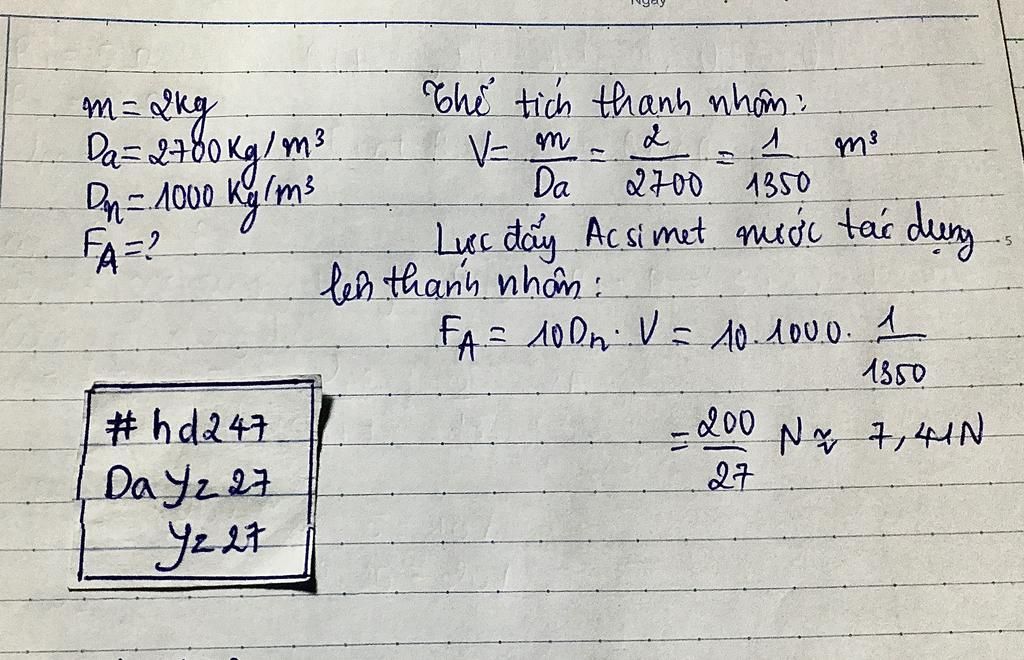 Ngày
m = 2kg
Da = 2700 Kg/m³
Dn = 1000 Kg/m³
FA = ?
Thể tích thanh nhôm:
V = m/Da = 2/2700 = 1/1350 m³
Lực đẩy Acsimet nước tác dụng
lên thanh nhôm:
FA = 10Dn . V = 10.1000. 1/1350
= 200/27 N ≈ 7,41N
5
#hd247
Da Yz 27
Yz 27